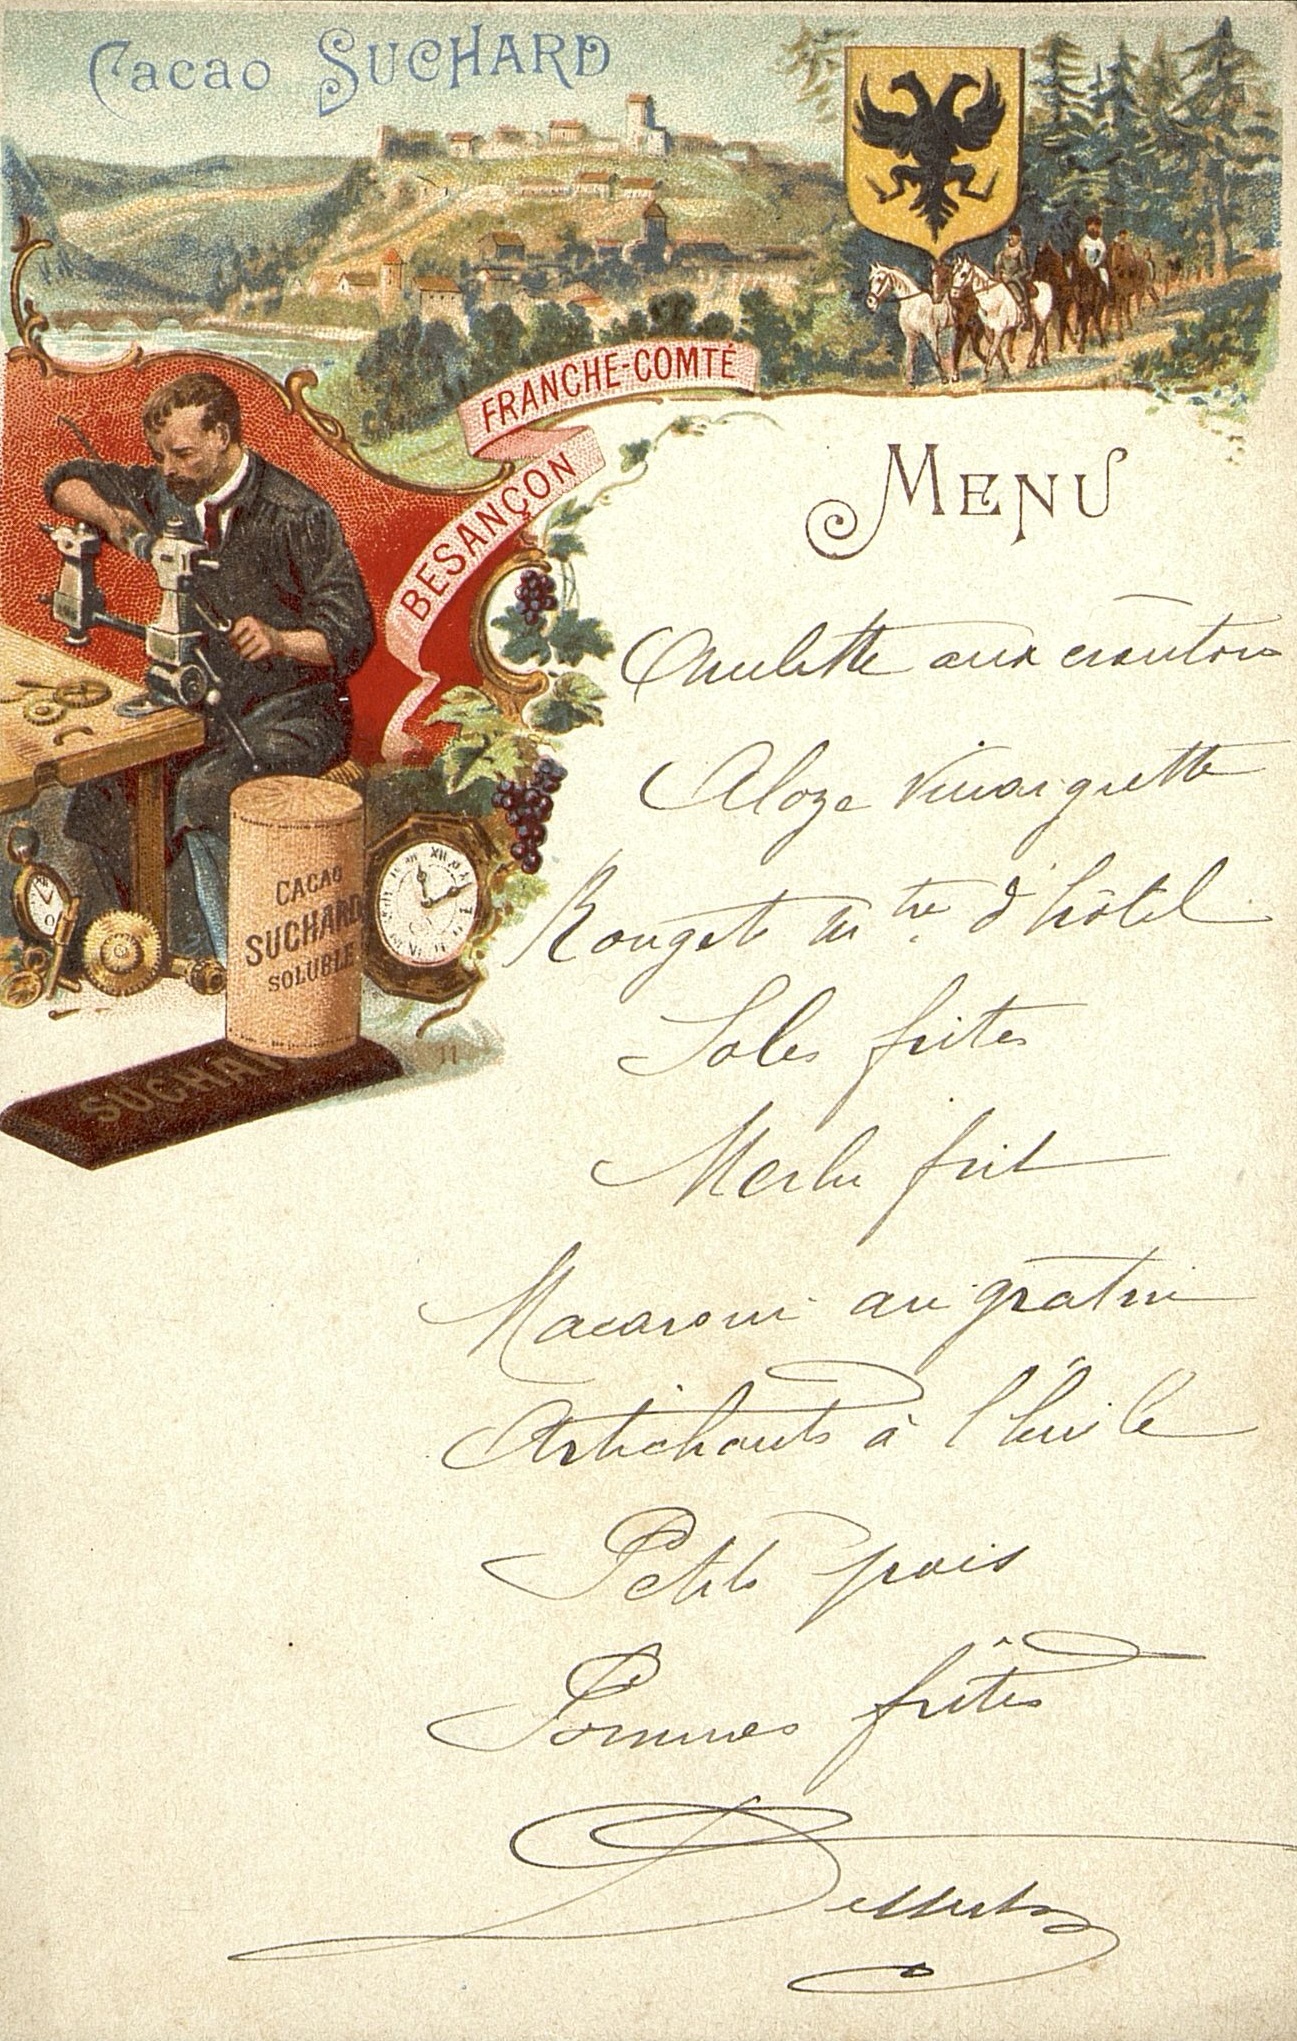 Cacao SUCHARD
FRANCHE-COMTÉ
BESANÇON
MENU
Omelette aux croûtons
Aloze Vinaigrette
Rougets Mtre d'hôtel
Soles frites
Merlu frit
Macaroni au gratin
Artichauts à l'huile
Petits pois
Pommes frîtes
Desserts
CACAO
SUCHARD
SOLUBLE
SUCHA
11